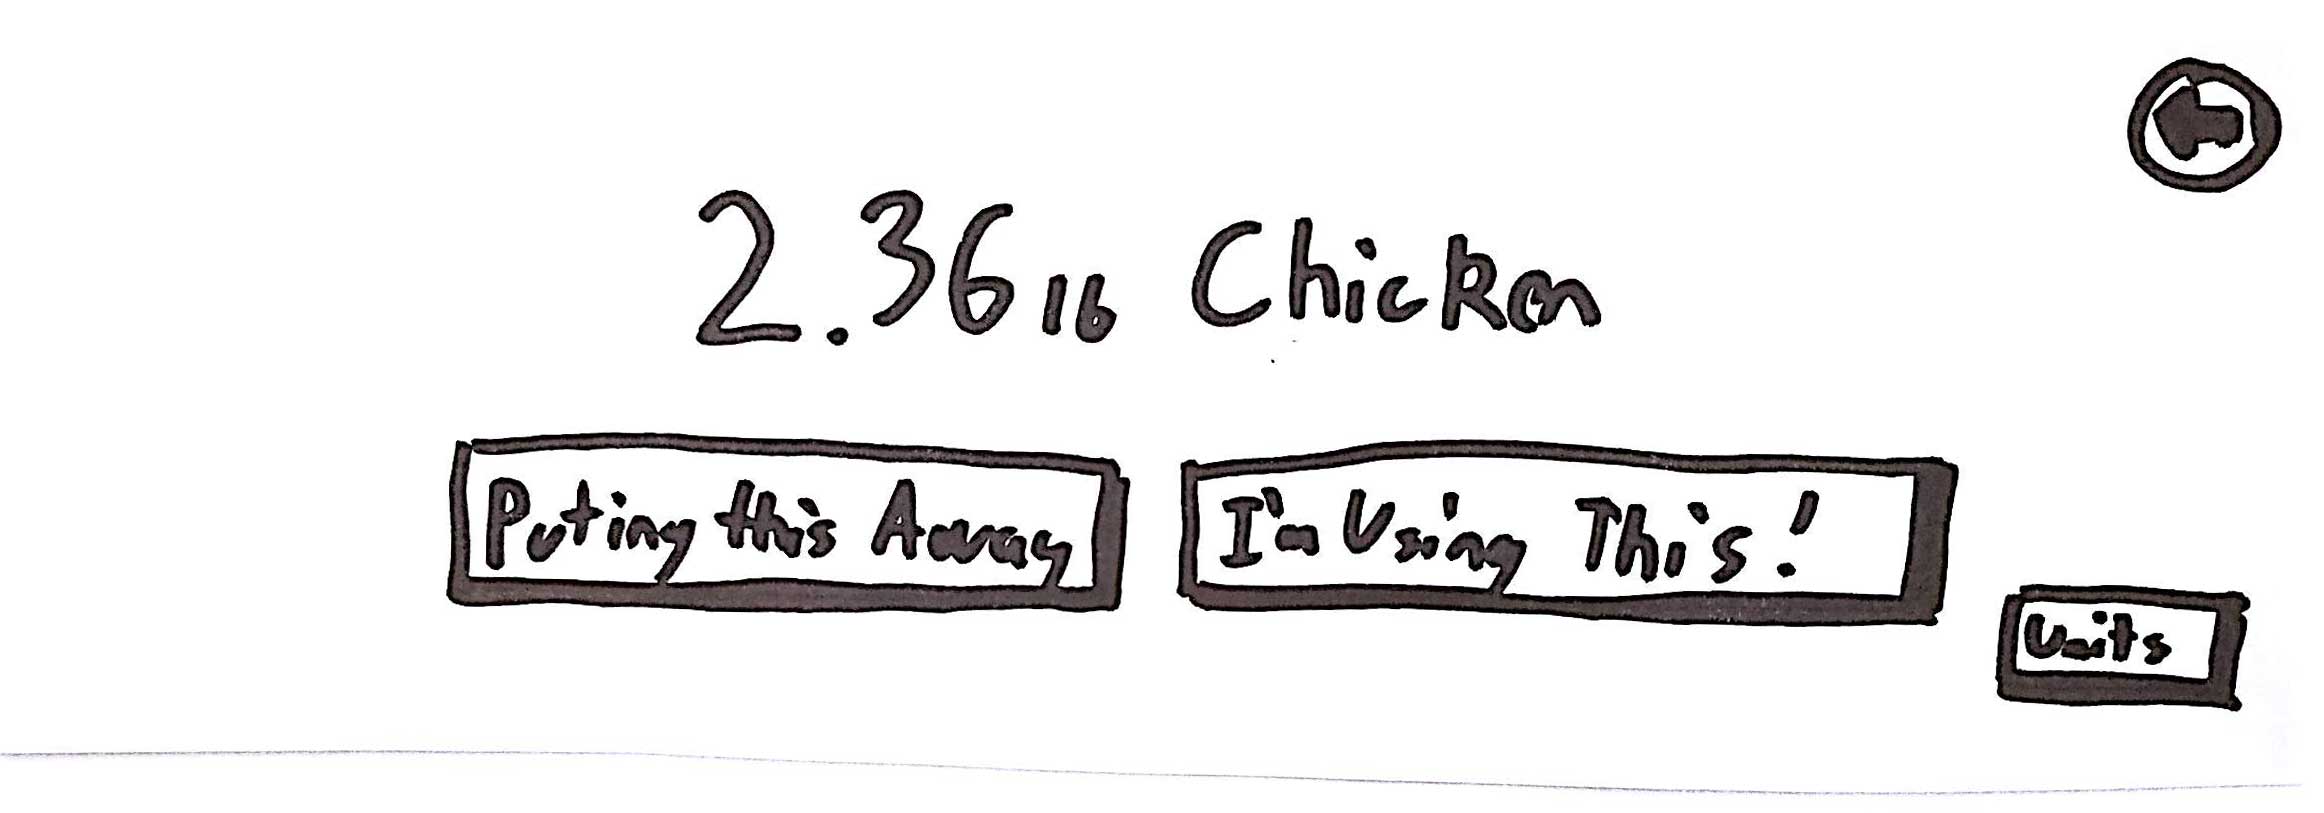 2.36 lb Chicken
Puting this Away
I'm Using This!
Units